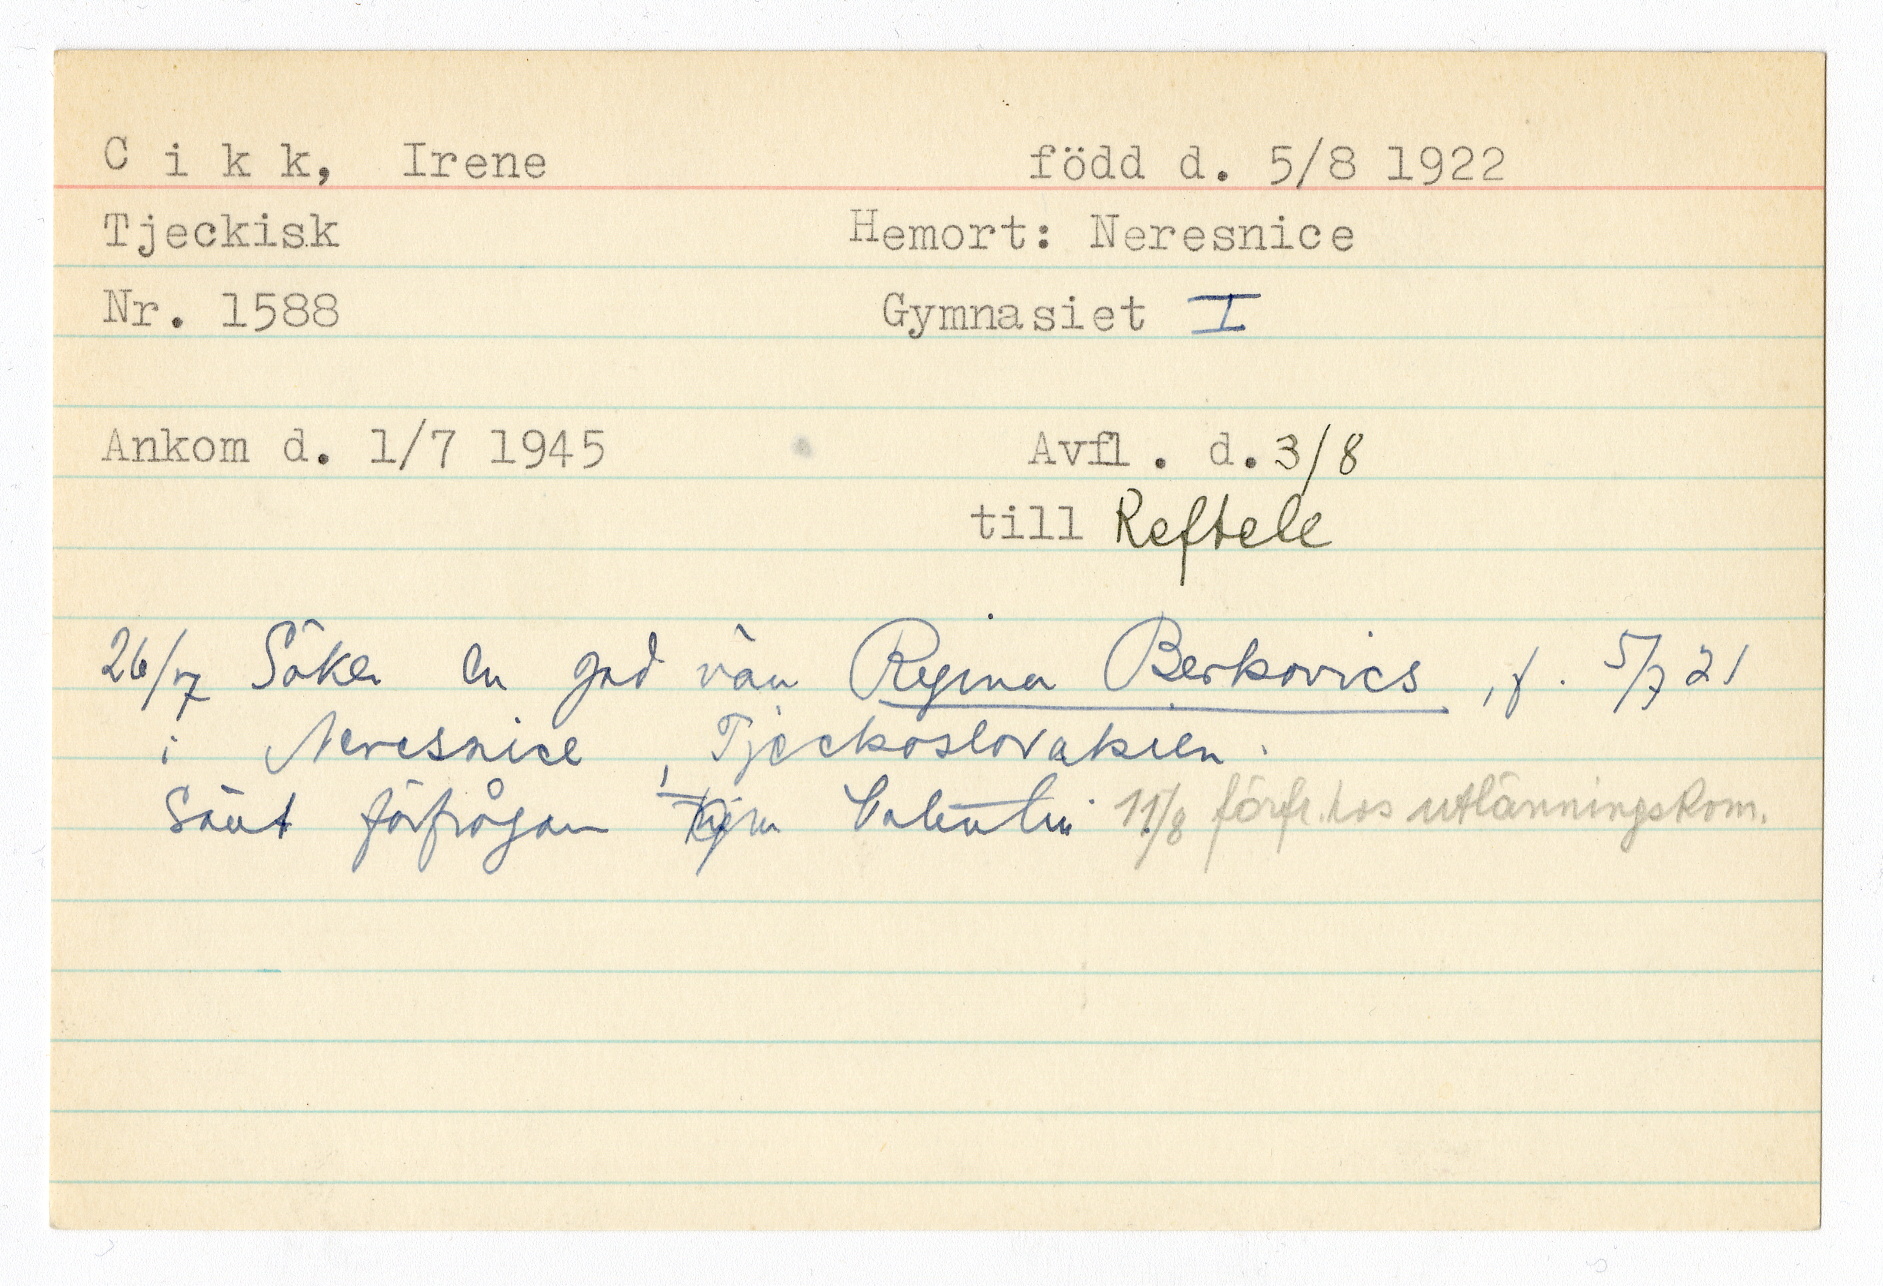 Cikk, Irene född d. 5/8 1922
Tjeckisk Hemort: Neresnice
Nr. 1588 Gymnasiet I
Ankom d. 1/7 1945 Avfl. d. 3/8
till Reftele
26/7 Söker en god vän Regina Berkovics, f. 5/7 21
i Neresnice, Tjeckoslovakien.
Sänt förfrågan Valentin 11/8 förfr. hos utlänningskom.